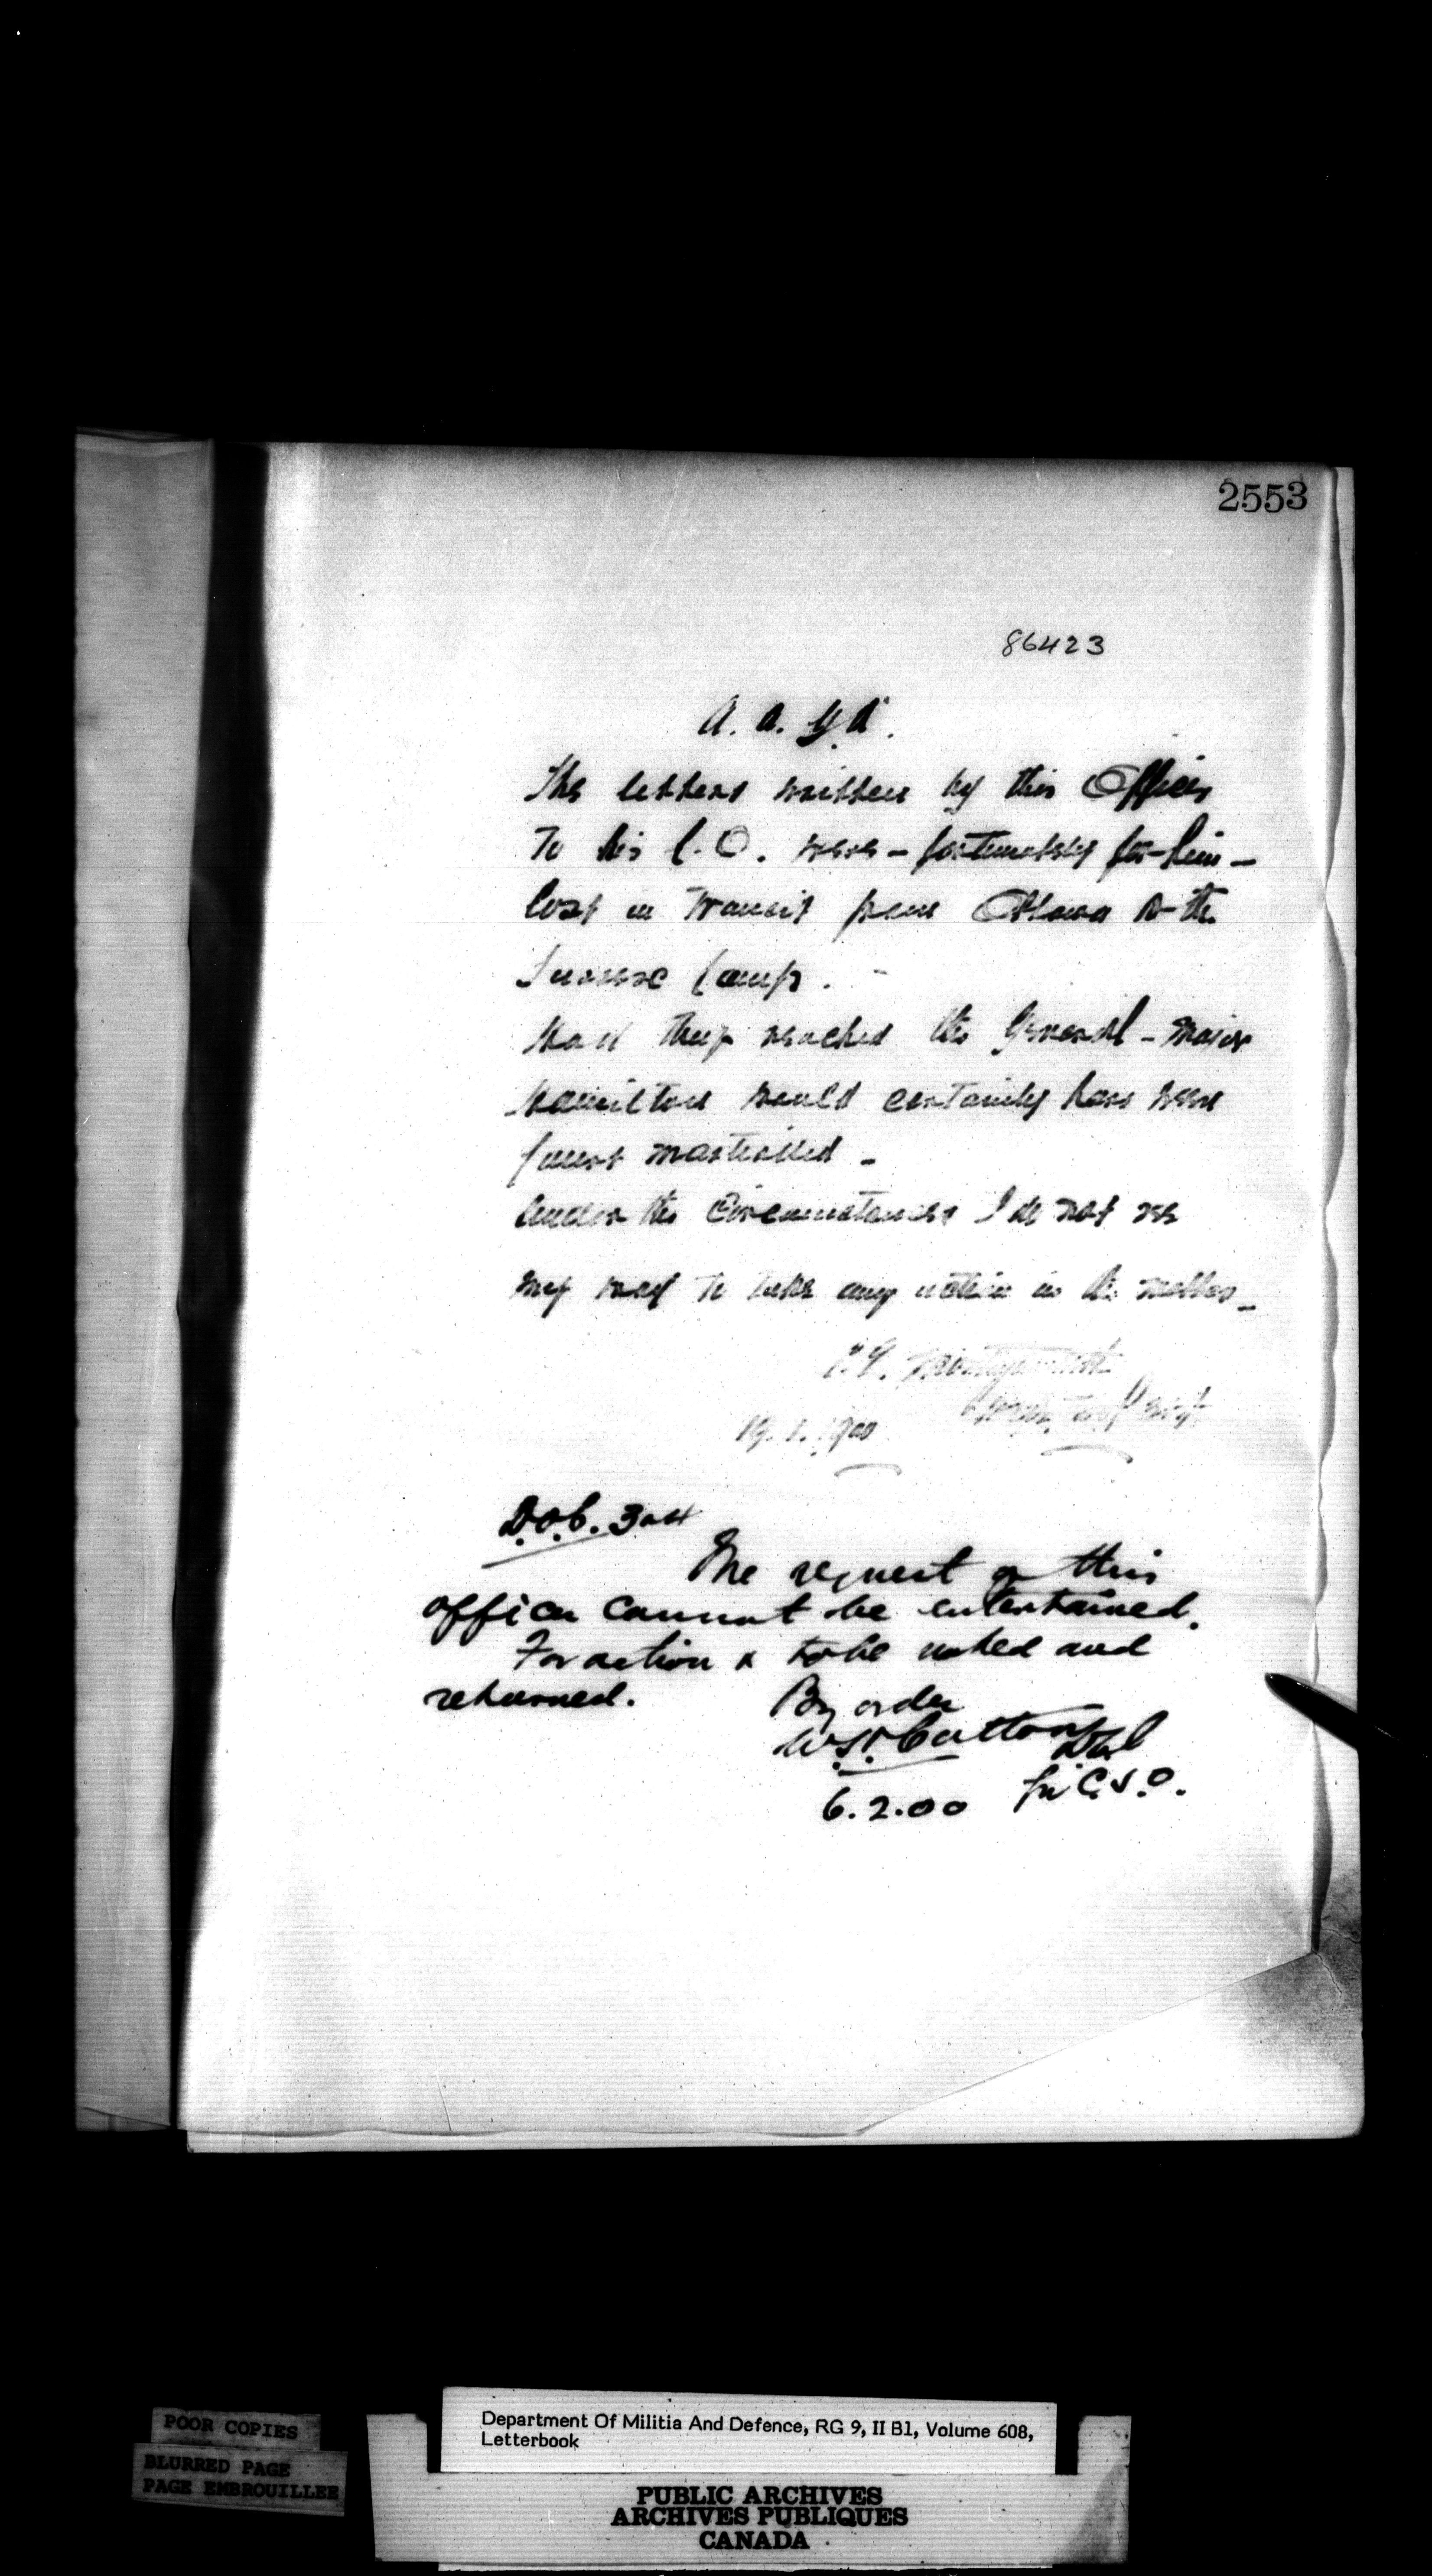 2553
86423
A. A. G. A.
The letters written by this Officer
To his C.O. were - fortunately for him -
lost in transit from Ottawa to the
Sussex Camp. -
Had they reached the General - Major
Hamilton would certainly have been
Court martialled -
Under the circumstances I do not see
my way to take any action in the matter -
19. 1. 1900
D.O.C. 3 & 4
The request of this
officer cannot be entertained.
For action & to be noted and
returned.
By order
W.S. Cotton
for C.S.O.
6.2.00
POOR COPIES
BLURRED PAGE
PAGE EMBROUILLEE
Department Of Militia And Defence, RG 9, II B1, Volume 608,
Letterbook
PUBLIC ARCHIVES
ARCHIVES PUBLIQUES
CANADA